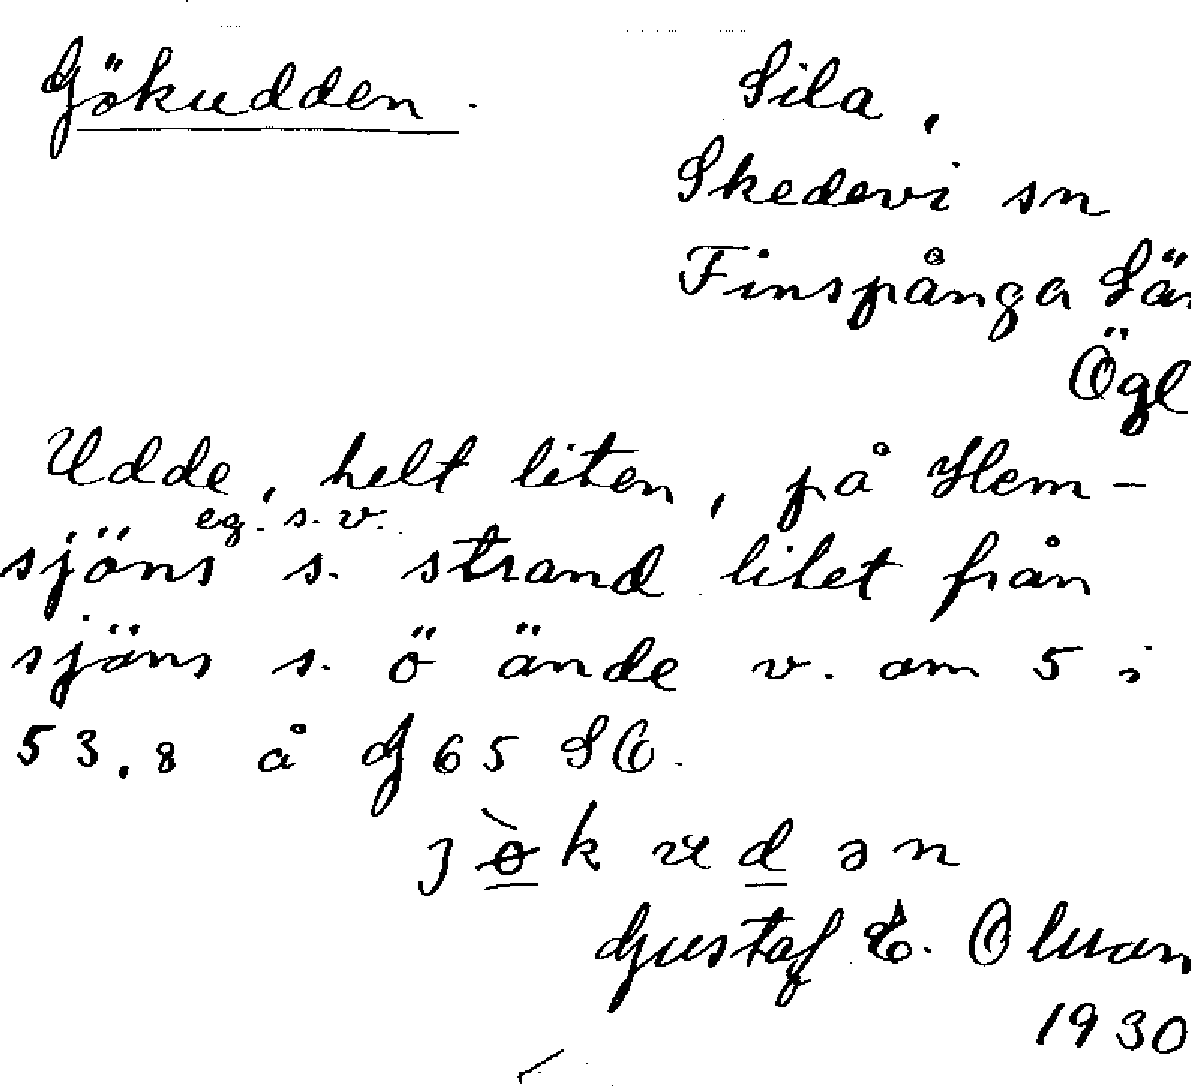 Gökudden.
Sila,
Skedevi sn
Finspånga Län
Ögl
Udde, helt liten, på Hem-
eg. s.v.
sjöns s. strand litet från
sjöns s. ö ände v. om 5 i
53,8 å G 65 SO.
jòk ud ən
Gustaf E. Olsson
1930